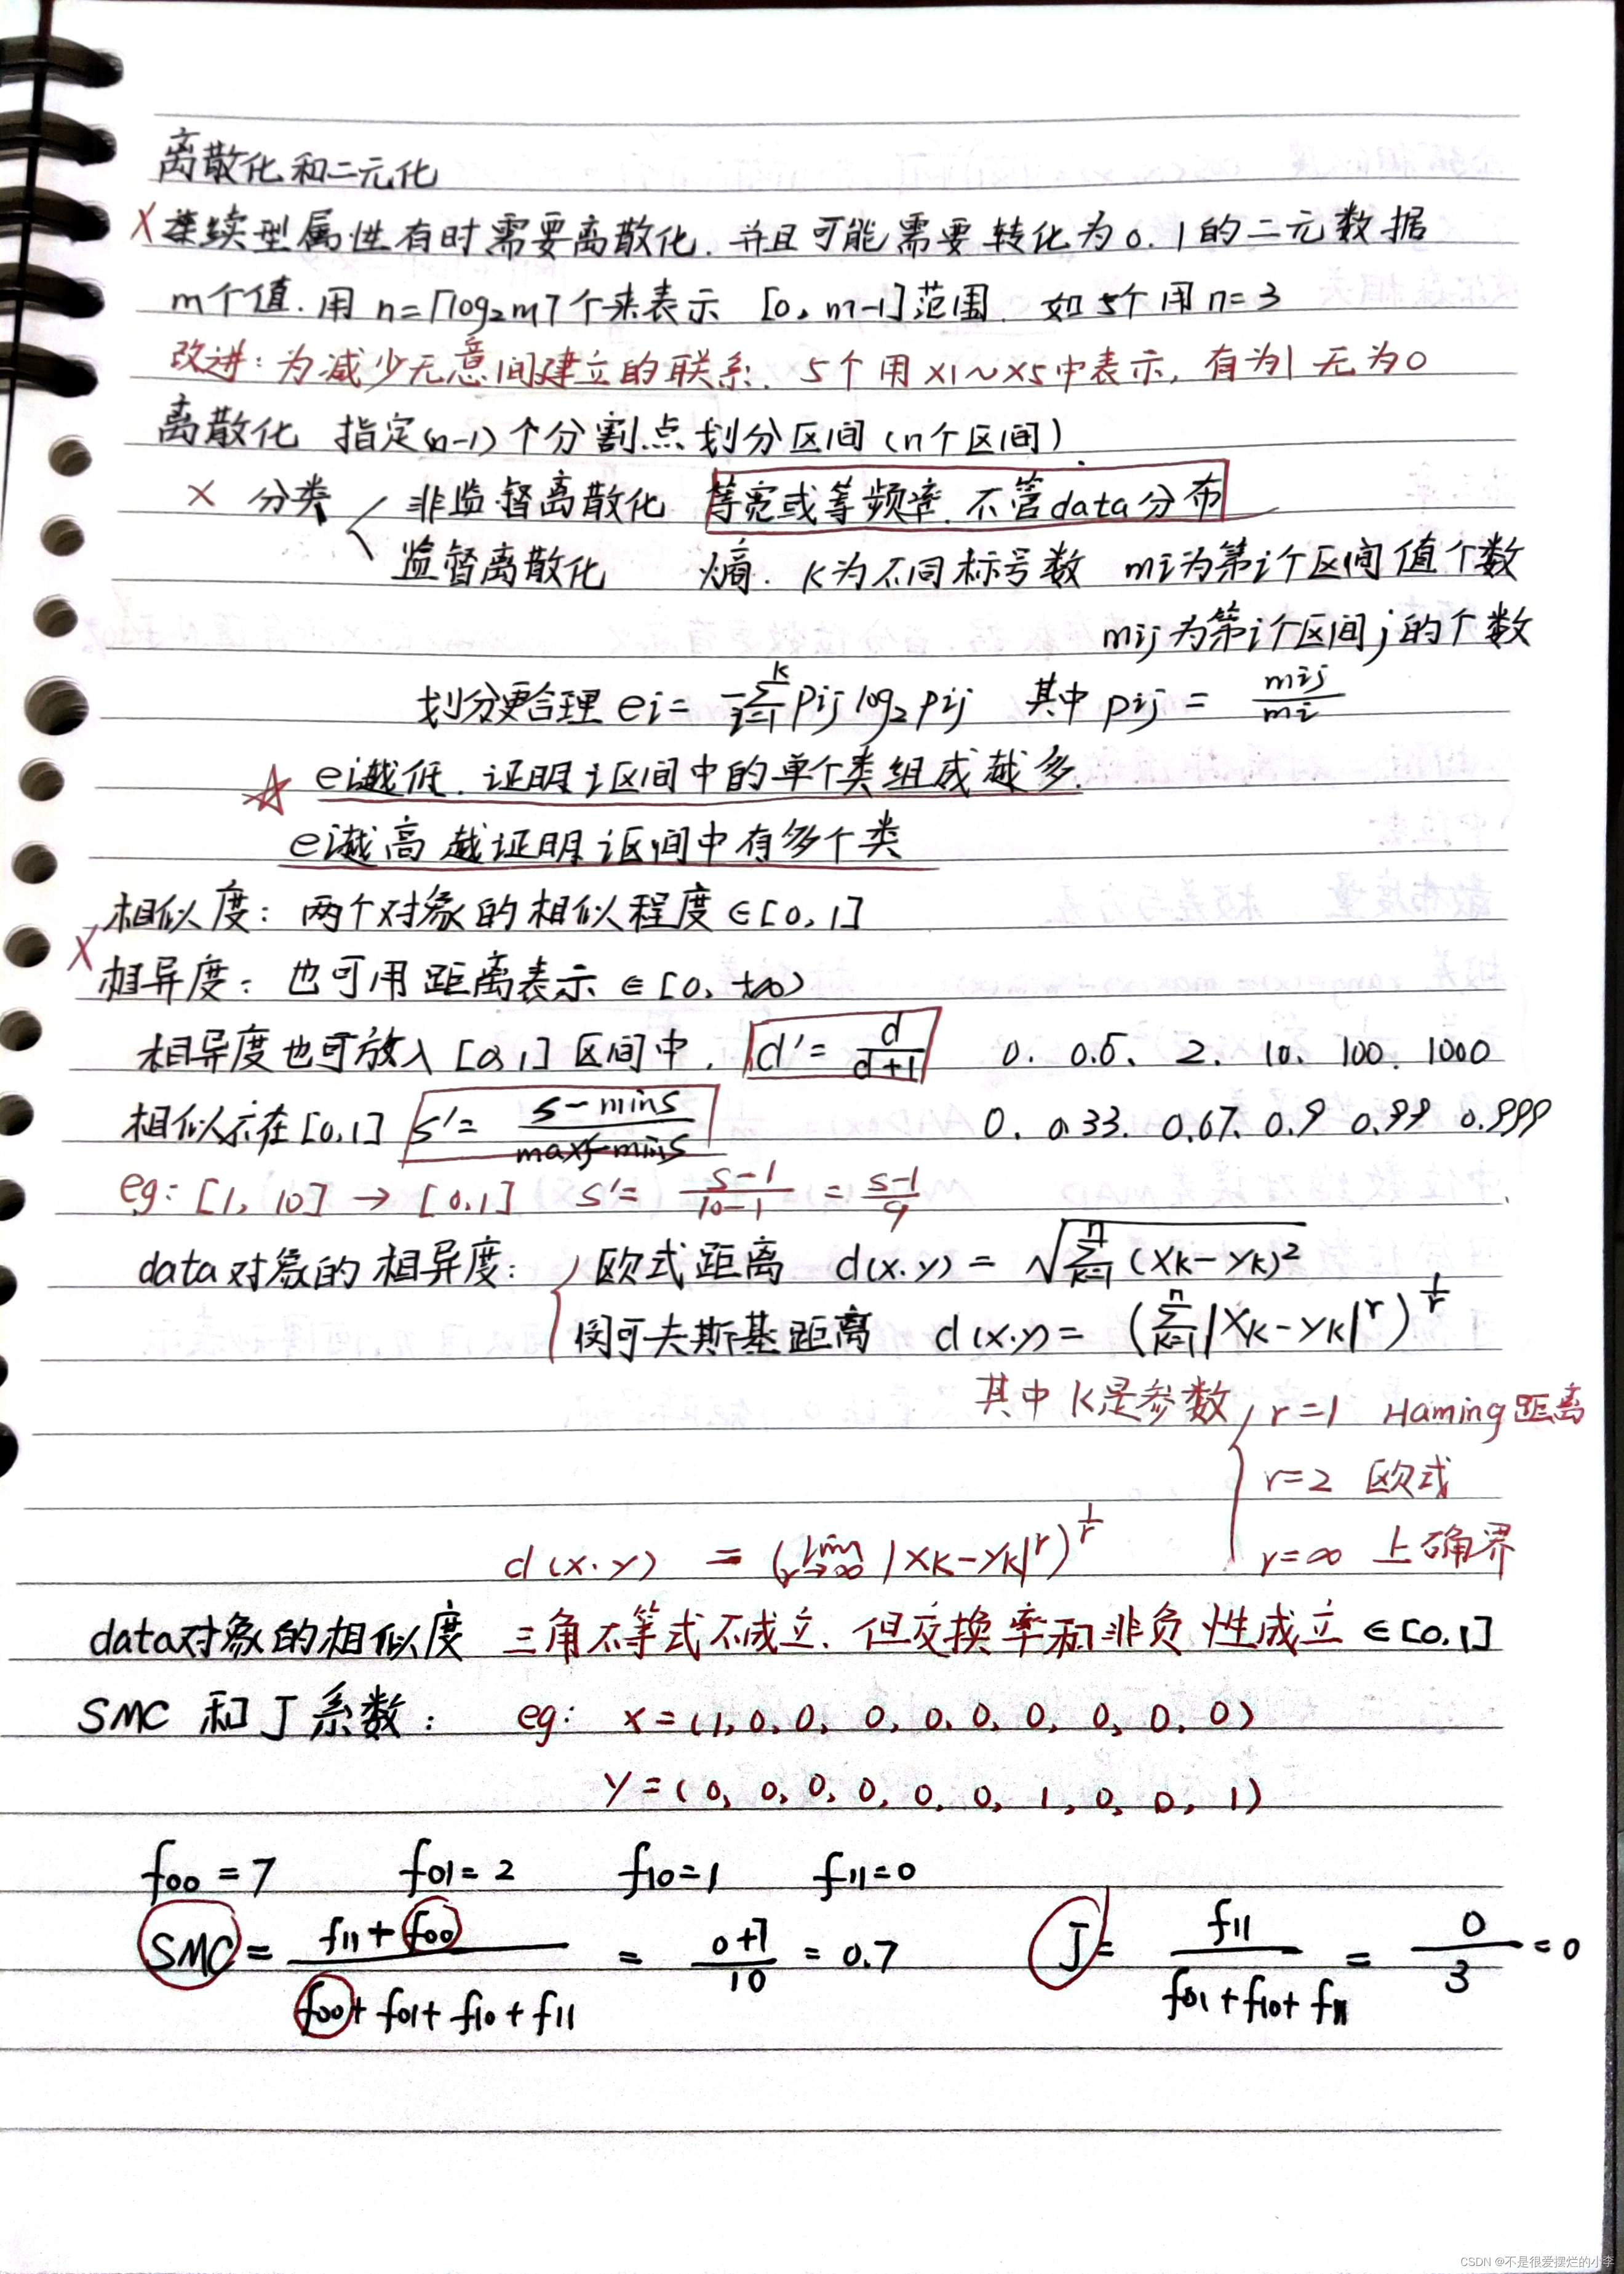 离散化和二元化
X 连续型属性有时需要离散化. 并且可能需要转化为0.1的二元数据
m个值. 用 n=⌈log₂m⌉个来表示 [0, m-1]范围. 如5个用n=3
改进: 为减少无意间建立的联系. 5个用x1~x5中表示, 有为1 无为0
离散化 指定(n-1)个分割点划分区间(n个区间)
X 分类 非监督离散化 等宽或等频率. 不管data分布
监督离散化 熵. k为不同标号数 mi为第i个区间值个数
mij为第i个区间j的个数
划分更合理 ei = -∑_{i=1}^{k} pij log₂ pij 其中 pij = mij/mi
☆ ei越低. 证明i区间中的单个类组成越多.
ei越高 越证明i区间中有多个类
相似度: 两个对象的相似程度∈[0,1]
X 相异度: 也可用距离表示∈[0, +∞)
相异度也可放入[0,1]区间中. d' = d/(d+1) 0. 0.5. 2. 10. 100. 1000
相似亦在[0,1] s' = (s-mins)/(maxs-mins) 0. 0.33. 0.67. 0.9 0.99 0.999
eg: [1, 10] → [0,1] s' = (s-1)/(10-1) = (s-1)/9
data对象的相异度: 欧式距离 d(x.y) = √(∑_{k=1}^{n} (xk-yk)²)
闵可夫斯基距离 d(x.y) = (∑_{k=1}^{n} |xk-yk|^r)^{1/r}
其中k是参数 r=1 Haming距离
r=2 欧式
r=∞ 上确界
d(x.y) = (lim_{r→∞} |xk-yk|^r)^{1/r}
data对象的相似度 三角不等式不成立. 但交换率和非负性成立∈[0,1]
SMC 和 J系数: eg: x=(1,0,0, 0,0,0, 0, 0, 0, 0)
y=(0, 0, 0, 0, 0, 0, 1, 0, 0, 1)
f00=7 f01=2 f10=1 f11=0
SMC = (f11+f00)/(f00+f01+f10+f11) = (0+7)/10 = 0.7 J = f11/(f01+f10+f11) = 0/3 = 0
CSDN @不是很爱摆烂的小李